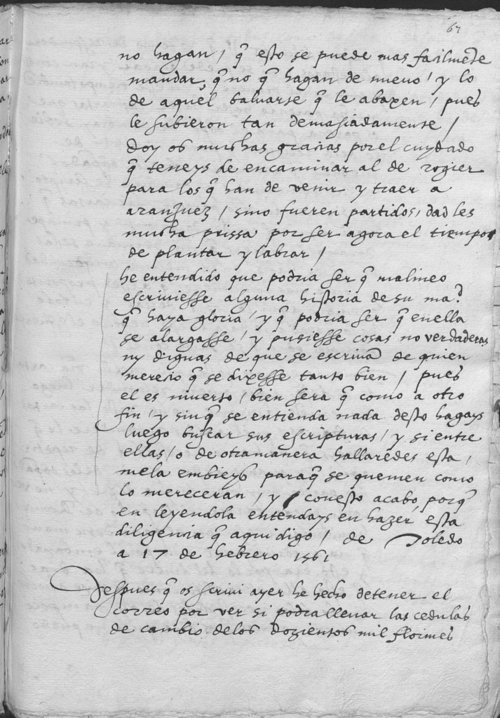 67
no hagan / q̃ esto se puede mas facilmẽte
mandar q̃ no q̃ hagan de nuevo / y lo
de aquel baluarte q̃ le abaxen / pues
le subieron tan demasiadamente /
doy os muchas gracias por el cuydado
q̃ teneys de encaminar al de rogier
para los q̃ han de venir y traer a
aranjuez / sino fueren partidos, dad les
mucha prissa por ser agora el tiempo
de plantar y labrar /
he entendido que podria ser q̃ malineo
escriviesse alguna historia de su ma.ᵈ
q̃ haya gloria / y q̃ podria ser q̃ en ella
se alargasse / y pusiesse cosas no verdaderas
ny dignas de que se escrivã de quien
merecio q̃ se dixesse tanto bien / pues
el es muerto / bien sera q̃ como a otro
fin / y sin q̃ se entienda nada desto hagays
luego buscar sus escripturas / y si entre
ellas / o de otra manera hallaredes esta /
me la embieys para q̃ se quemen como
lo mereceran / y con esto acabo, porq̃
en leyendola entendays en hazer esta
diligencia q̃ aqui digo / de Toledo
a 17 de hebrero 1561
Despues q̃ os screvi ayer he hecho detener el
correo por ver si podra llevar las cedulas
de cambio de los dozientos mil florines